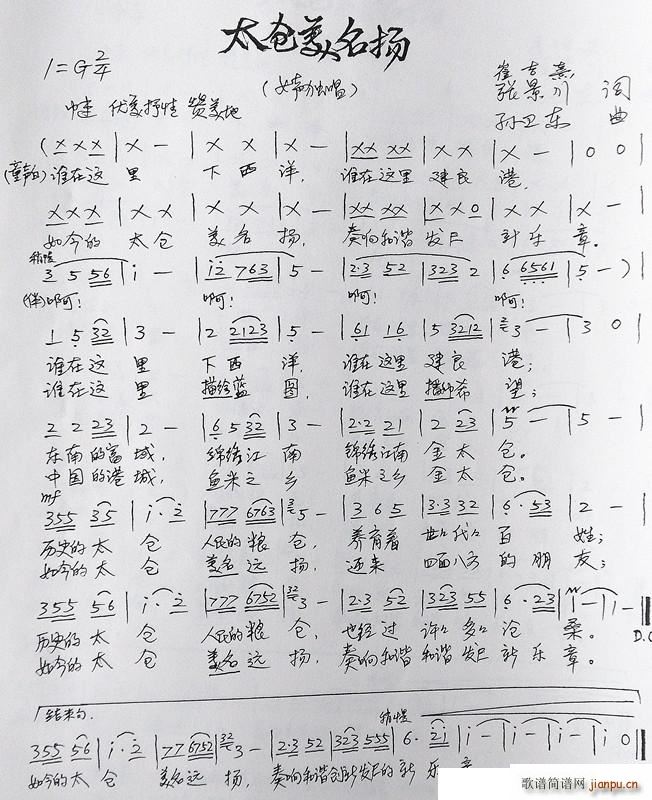 太仓美名扬
1=G 2/4
(女声独唱)
中速 优美抒情 赞美地
张景川 词
孙卫东 曲
(X X X | X — | X X X | X — | XX XX | X X | X — | 0 0 |
(童声白)谁在这里 下西洋, 谁在这里建良港,
X X X | X X | X X X | X — | XX XX | X X 0 | X X | X — |
如今的太仓 美名扬, 奏响和谐发展新乐章。
稍慢
3 5 56 | i — | i2 763 | 5 — | 2·3 52 | 323 2 | 6 6561 | 5 — )
(伴)啊! 啊! 啊! 啊!
1 5 32 | 3 — | 2 2123 | 5 — | 61 16 | 5 3212 | 3 — | 3 0 |
谁在这里 下西洋, 谁在这里建良港;
谁在这里 描绘蓝图, 谁在这里播种希望;
2 2 23 | 2 — | 6 5 32 | 3 — | 2·2 21 | 2 23 | 5 — | 5 — |
东南的富城, 锦绣江南 锦绣江南金太仓。
中国的港城, 鱼米之乡 鱼米之乡金太仓。
mf
355 35 | i·2 | 777 6763 | 5 — | 3 6 5 | 3·3 32 | 6·53 | 2 — |
历史的太仓 人民的粮仓, 养育着世世代代百姓;
如今的太仓 美名远扬, 迎来四面八方的朋友;
355 56 | i·2 | 777 6752 | 3 — | 2·3 52 | 323 55 | 6·23 | i — | i — ‖
D.C
历史的太仓 人民的粮仓, 也经过许许多多沧桑。
如今的太仓 美名远扬, 奏响和谐和谐发展新乐章。
结束句.
稍慢
355 56 | i·2 | 77 6752 | 3 — | 2·3 52 | 323 555 | 6·2i | i — | i — | i — | i 0 ‖
如今的太仓 美名远扬, 奏响和谐创新发展的新乐章
歌谱简谱网
jianpu.cn